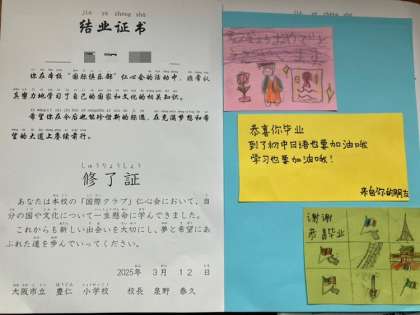 jié yè zhèng shū
结业证书
你在本校“国际俱乐部”仁心会的活动中,非常认
真努力地学习了自己的国家和文化的相关知识。
希望你在今后也能珍惜新的相遇,在充满梦想和希
望的大道上继续前行。
しゅうりょうしょう
修了証
あなたは本校の「国際クラブ」仁心会において、自
分の国や文化について一生懸命に学んできました。
これからも新しい出会いを大切にし、夢と希望にあ
ふれた道を歩んでいってください。
2025年 3月 12日
大阪市立 豊仁 小学校 校長 泉野 泰久
恭喜你毕业
到了初中日语也要加油哦
学习也要加油哦!
来自你的朋友
谢谢
恭喜毕业